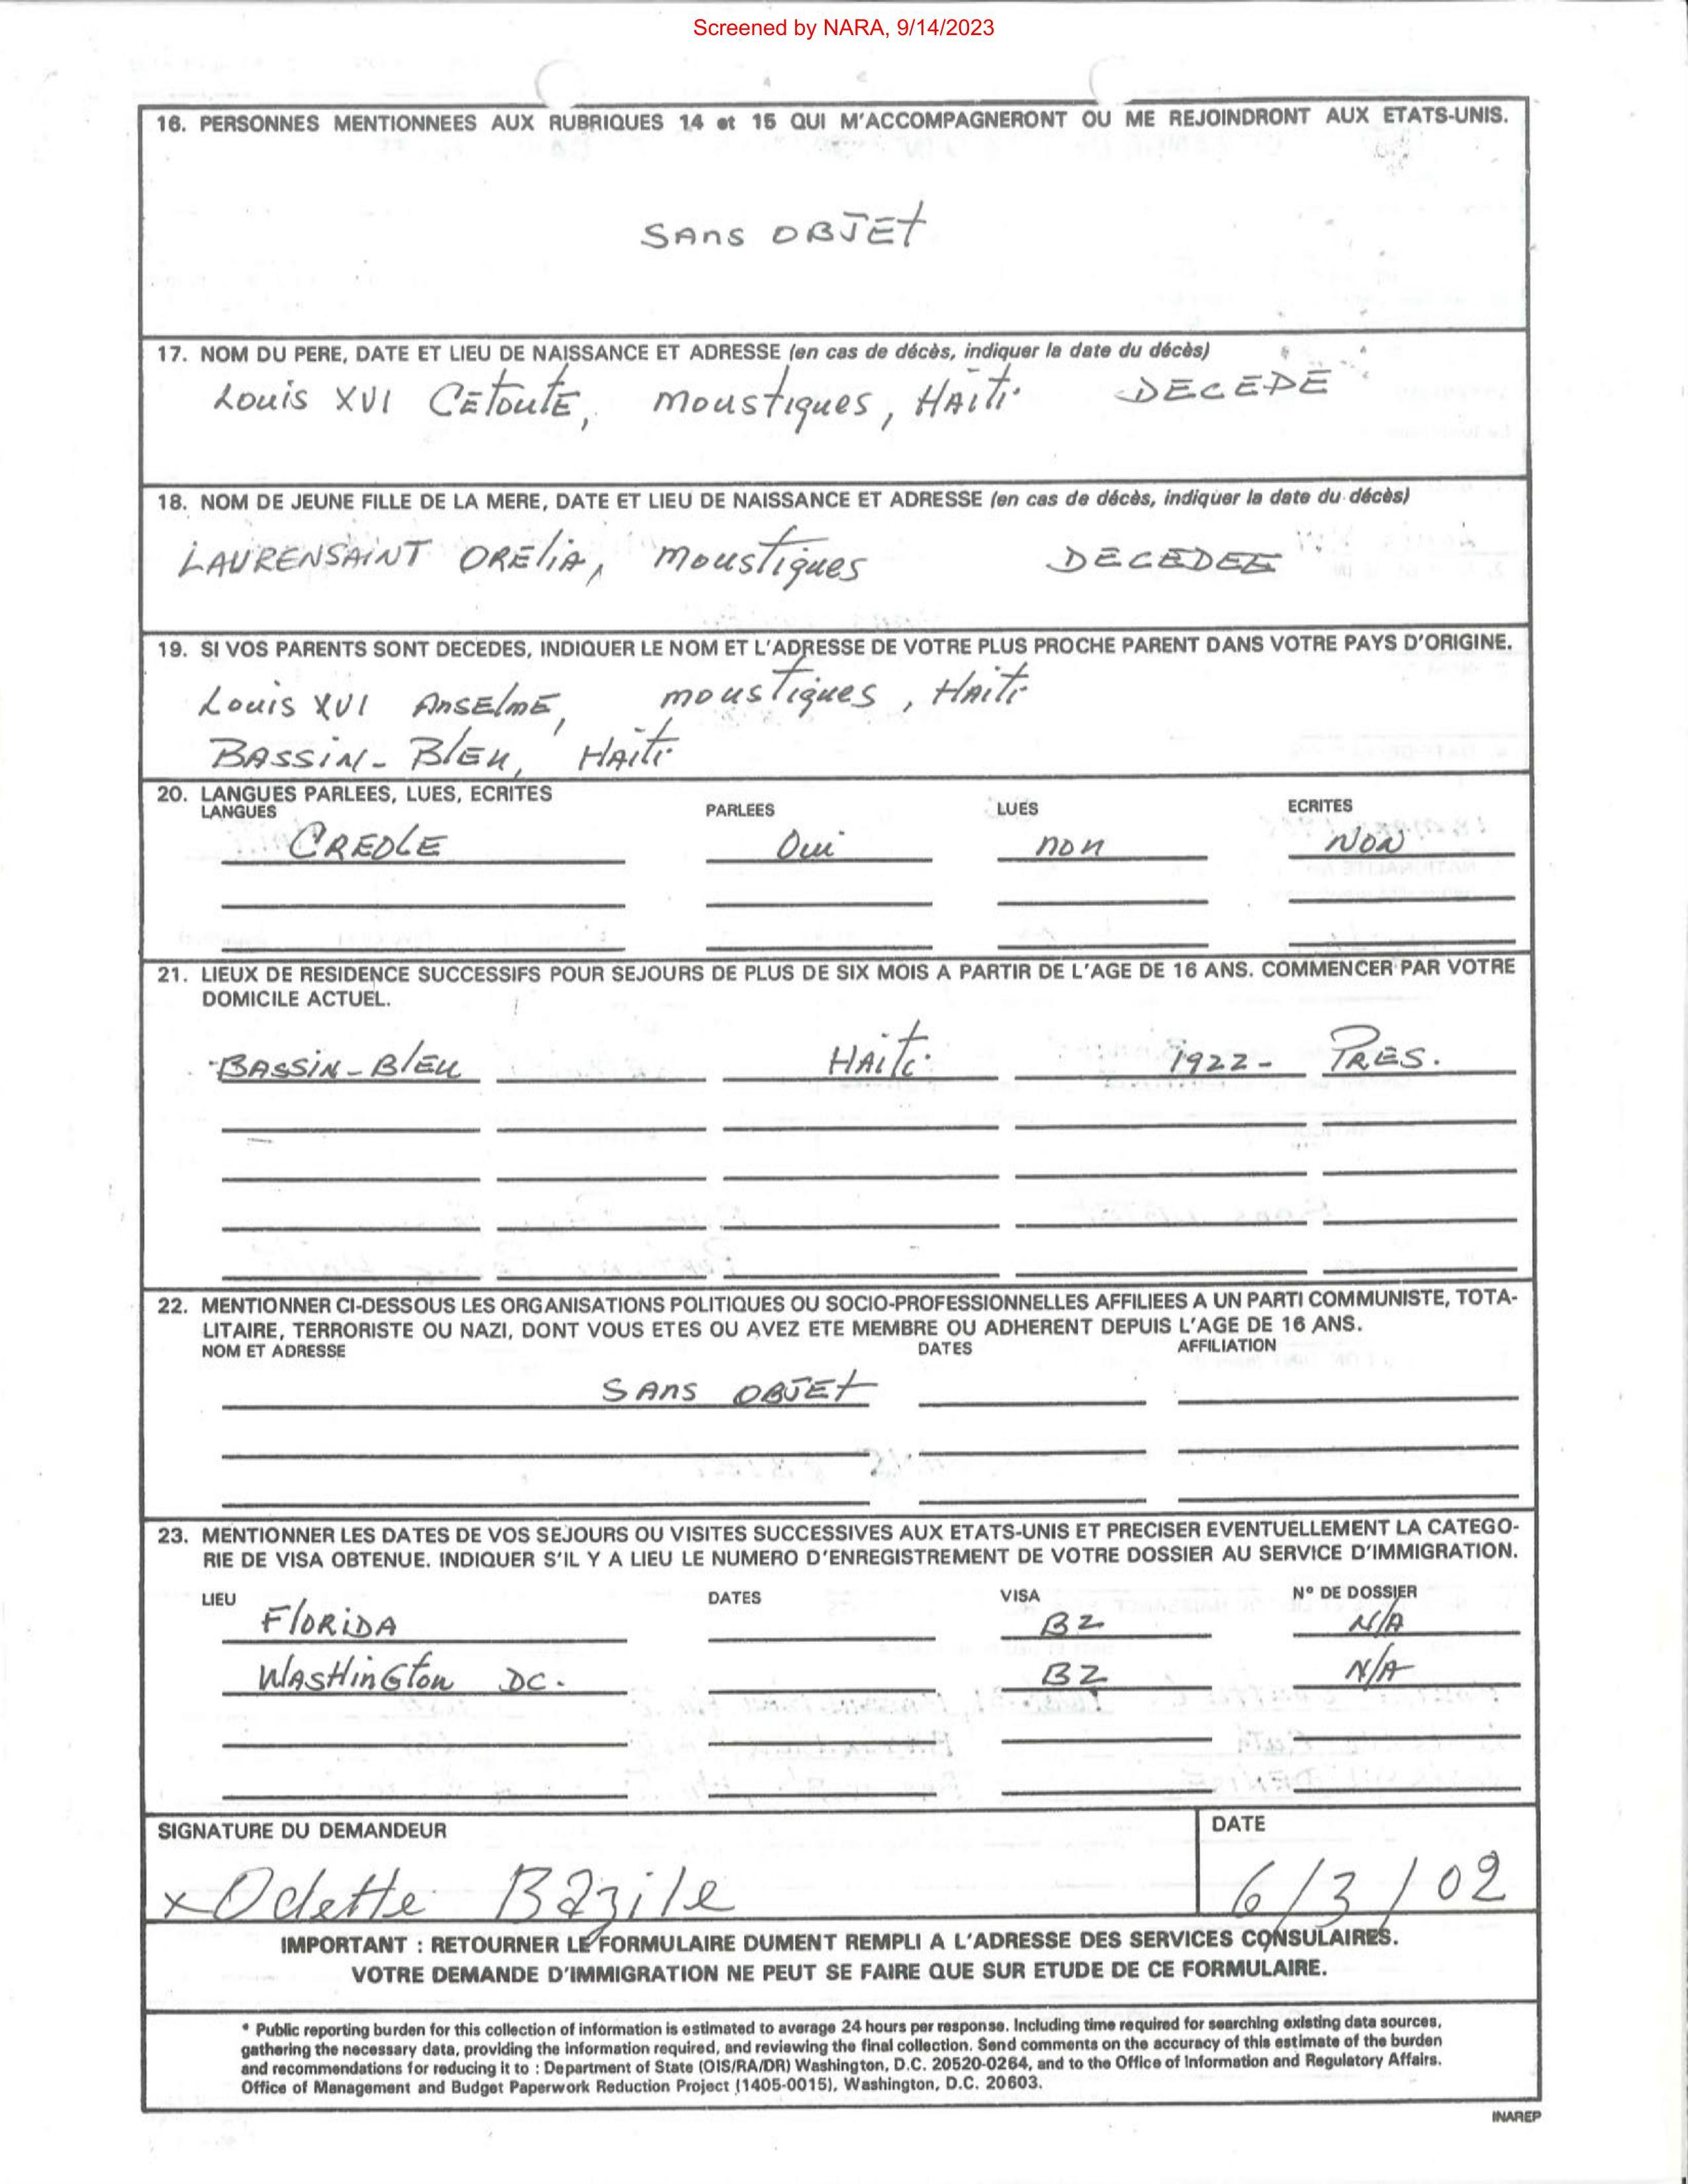 Screened by NARA, 9/14/2023
16. PERSONNES MENTIONNEES AUX RUBRIQUES 14 et 15 QUI M'ACCOMPAGNERONT OU ME REJOINDRONT AUX ETATS-UNIS.
SANS OBJET
17. NOM DU PERE, DATE ET LIEU DE NAISSANCE ET ADRESSE (en cas de décès, indiquer la date du décès)
Louis XVI CEtoutE, moustiques, HAiti DECEDE
18. NOM DE JEUNE FILLE DE LA MERE, DATE ET LIEU DE NAISSANCE ET ADRESSE (en cas de décès, indiquer la date du décès)
LAURENSAINT OREliA, moustiques DECEDEE
19. SI VOS PARENTS SONT DECEDES, INDIQUER LE NOM ET L'ADRESSE DE VOTRE PLUS PROCHE PARENT DANS VOTRE PAYS D'ORIGINE.
Louis XVI AnsElmE, moustiques, HAiti
BASSiN-BlEu, HAiti
20. LANGUES PARLEES, LUES, ECRITES
LANGUES PARLEES LUES ECRITES
CREOLE Oui non NON
21. LIEUX DE RESIDENCE SUCCESSIFS POUR SEJOURS DE PLUS DE SIX MOIS A PARTIR DE L'AGE DE 16 ANS. COMMENCER PAR VOTRE
DOMICILE ACTUEL.
BASSiN-BlEu HAiti 1922- PRES.
22. MENTIONNER CI-DESSOUS LES ORGANISATIONS POLITIQUES OU SOCIO-PROFESSIONNELLES AFFILIEES A UN PARTI COMMUNISTE, TOTA-
LITAIRE, TERRORISTE OU NAZI, DONT VOUS ETES OU AVEZ ETE MEMBRE OU ADHERENT DEPUIS L'AGE DE 16 ANS.
NOM ET ADRESSE DATES AFFILIATION
SANS OBJET
23. MENTIONNER LES DATES DE VOS SEJOURS OU VISITES SUCCESSIVES AUX ETATS-UNIS ET PRECISER EVENTUELLEMENT LA CATEGO-
RIE DE VISA OBTENUE. INDIQUER S'IL Y A LIEU LE NUMERO D'ENREGISTREMENT DE VOTRE DOSSIER AU SERVICE D'IMMIGRATION.
LIEU DATES VISA N° DE DOSSIER
FlORiDA B2 N/A
WASHinGton DC. B2 N/A
SIGNATURE DU DEMANDEUR DATE
x Odette Bazile 6/3/02
IMPORTANT : RETOURNER LE FORMULAIRE DUMENT REMPLI A L'ADRESSE DES SERVICES CONSULAIRES.
VOTRE DEMANDE D'IMMIGRATION NE PEUT SE FAIRE QUE SUR ETUDE DE CE FORMULAIRE.
* Public reporting burden for this collection of information is estimated to average 24 hours per response. Including time required for searching existing data sources,
gathering the necessary data, providing the information required, and reviewing the final collection. Send comments on the accuracy of this estimate of the burden
and recommendations for reducing it to : Department of State (OIS/RA/DR) Washington, D.C. 20520-0264, and to the Office of Information and Regulatory Affairs.
Office of Management and Budget Paperwork Reduction Project (1405-0015), Washington, D.C. 20603.
INAREP